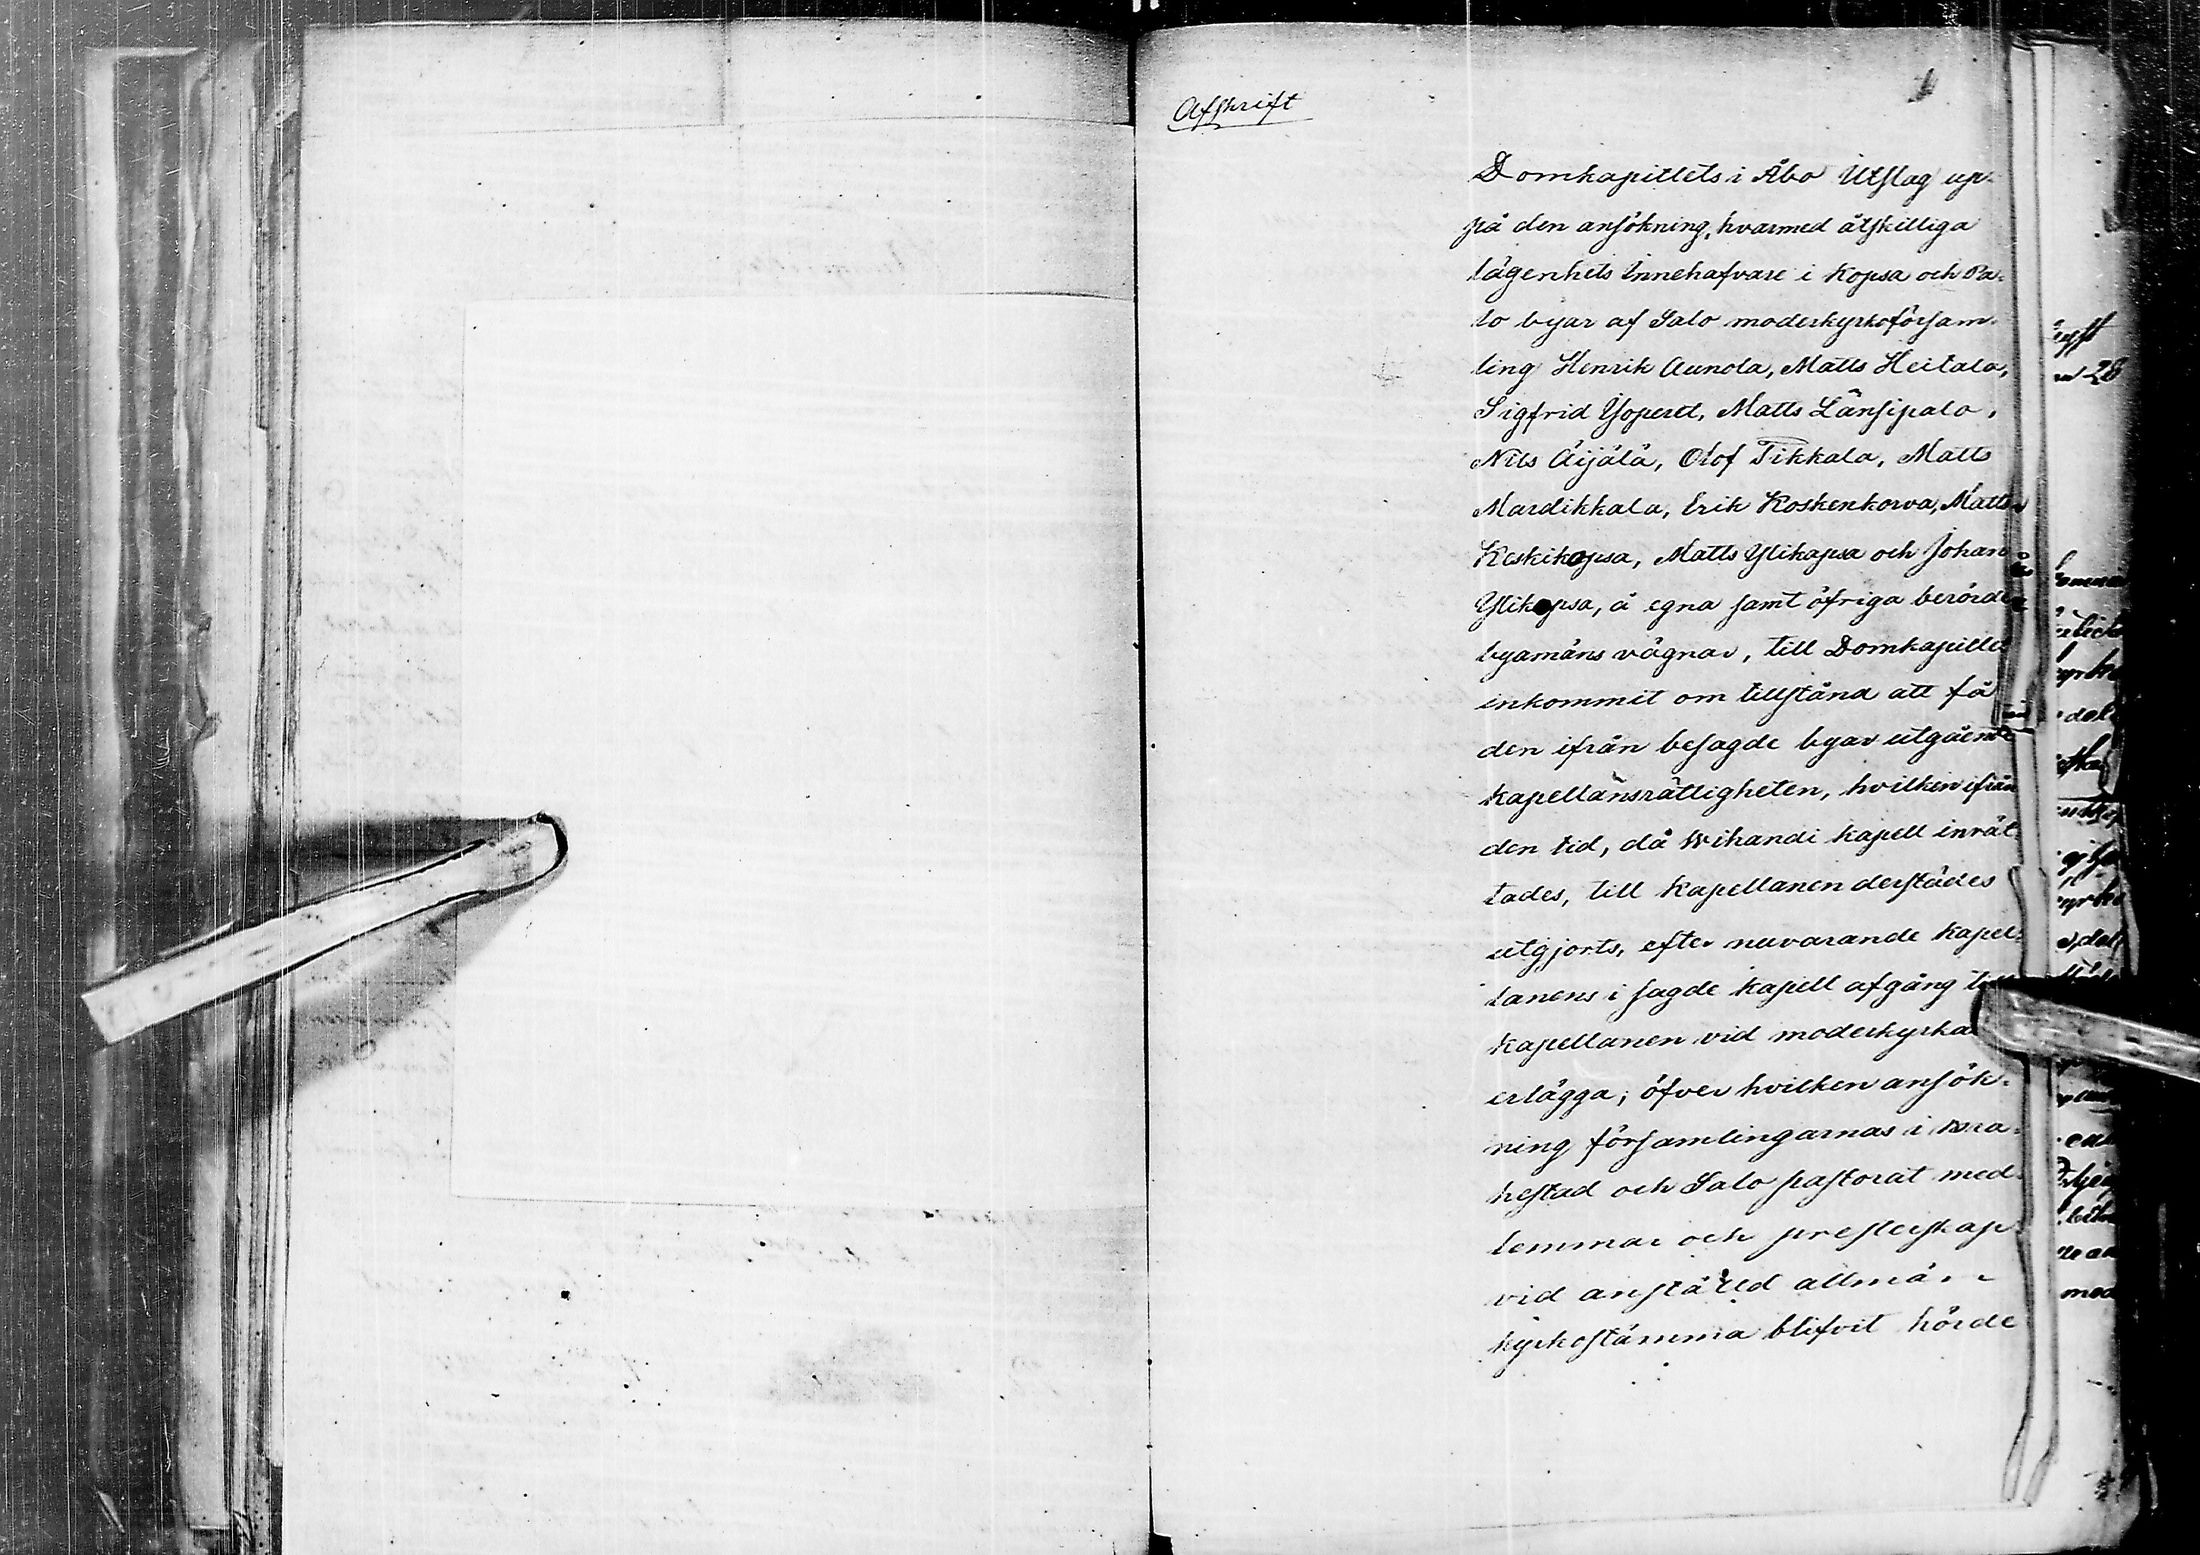 Afskrift
Domkapitlets i Åbo Utslag up-
på den ansökning, hvarmed åtskilliga
lägenhets Innehafvare i Kopsa och Pa-
lo byar af Salo moderkyrkoförsam-
ling Henrik Aunola, Matts Heitala,
Sigfrid Ysopertt, Matts Länsipalo,
Nils Äijälä, Olof Tikkala, Matts
Mardikkala, Erik Koskenkorva, Matts
Keskikopsa, Matts Ylikopsa och Johan
Ylikopsa, å egna samt öfriga berörde
byamäns vägnar, till Domkapitlet
inkommit om tillstånd att få
den ifrån besagde byar utgående
kapellansrättigheten, hvilken ifrån
den tid, då Wihandi kapell inrät-
tades, till kapellanen derstädes
utgjorts, efter nuvarande kapel-
lanens i sagde kapell afgång till
kapellanen vid moderkyrkan
erlägga; öfver hvilken ansök-
ning församlingarnas i Bra-
hestad och Salo pastorat med-
lemmar och presterskap
vid anställd allmän
kyrkostämma blifvit hörde